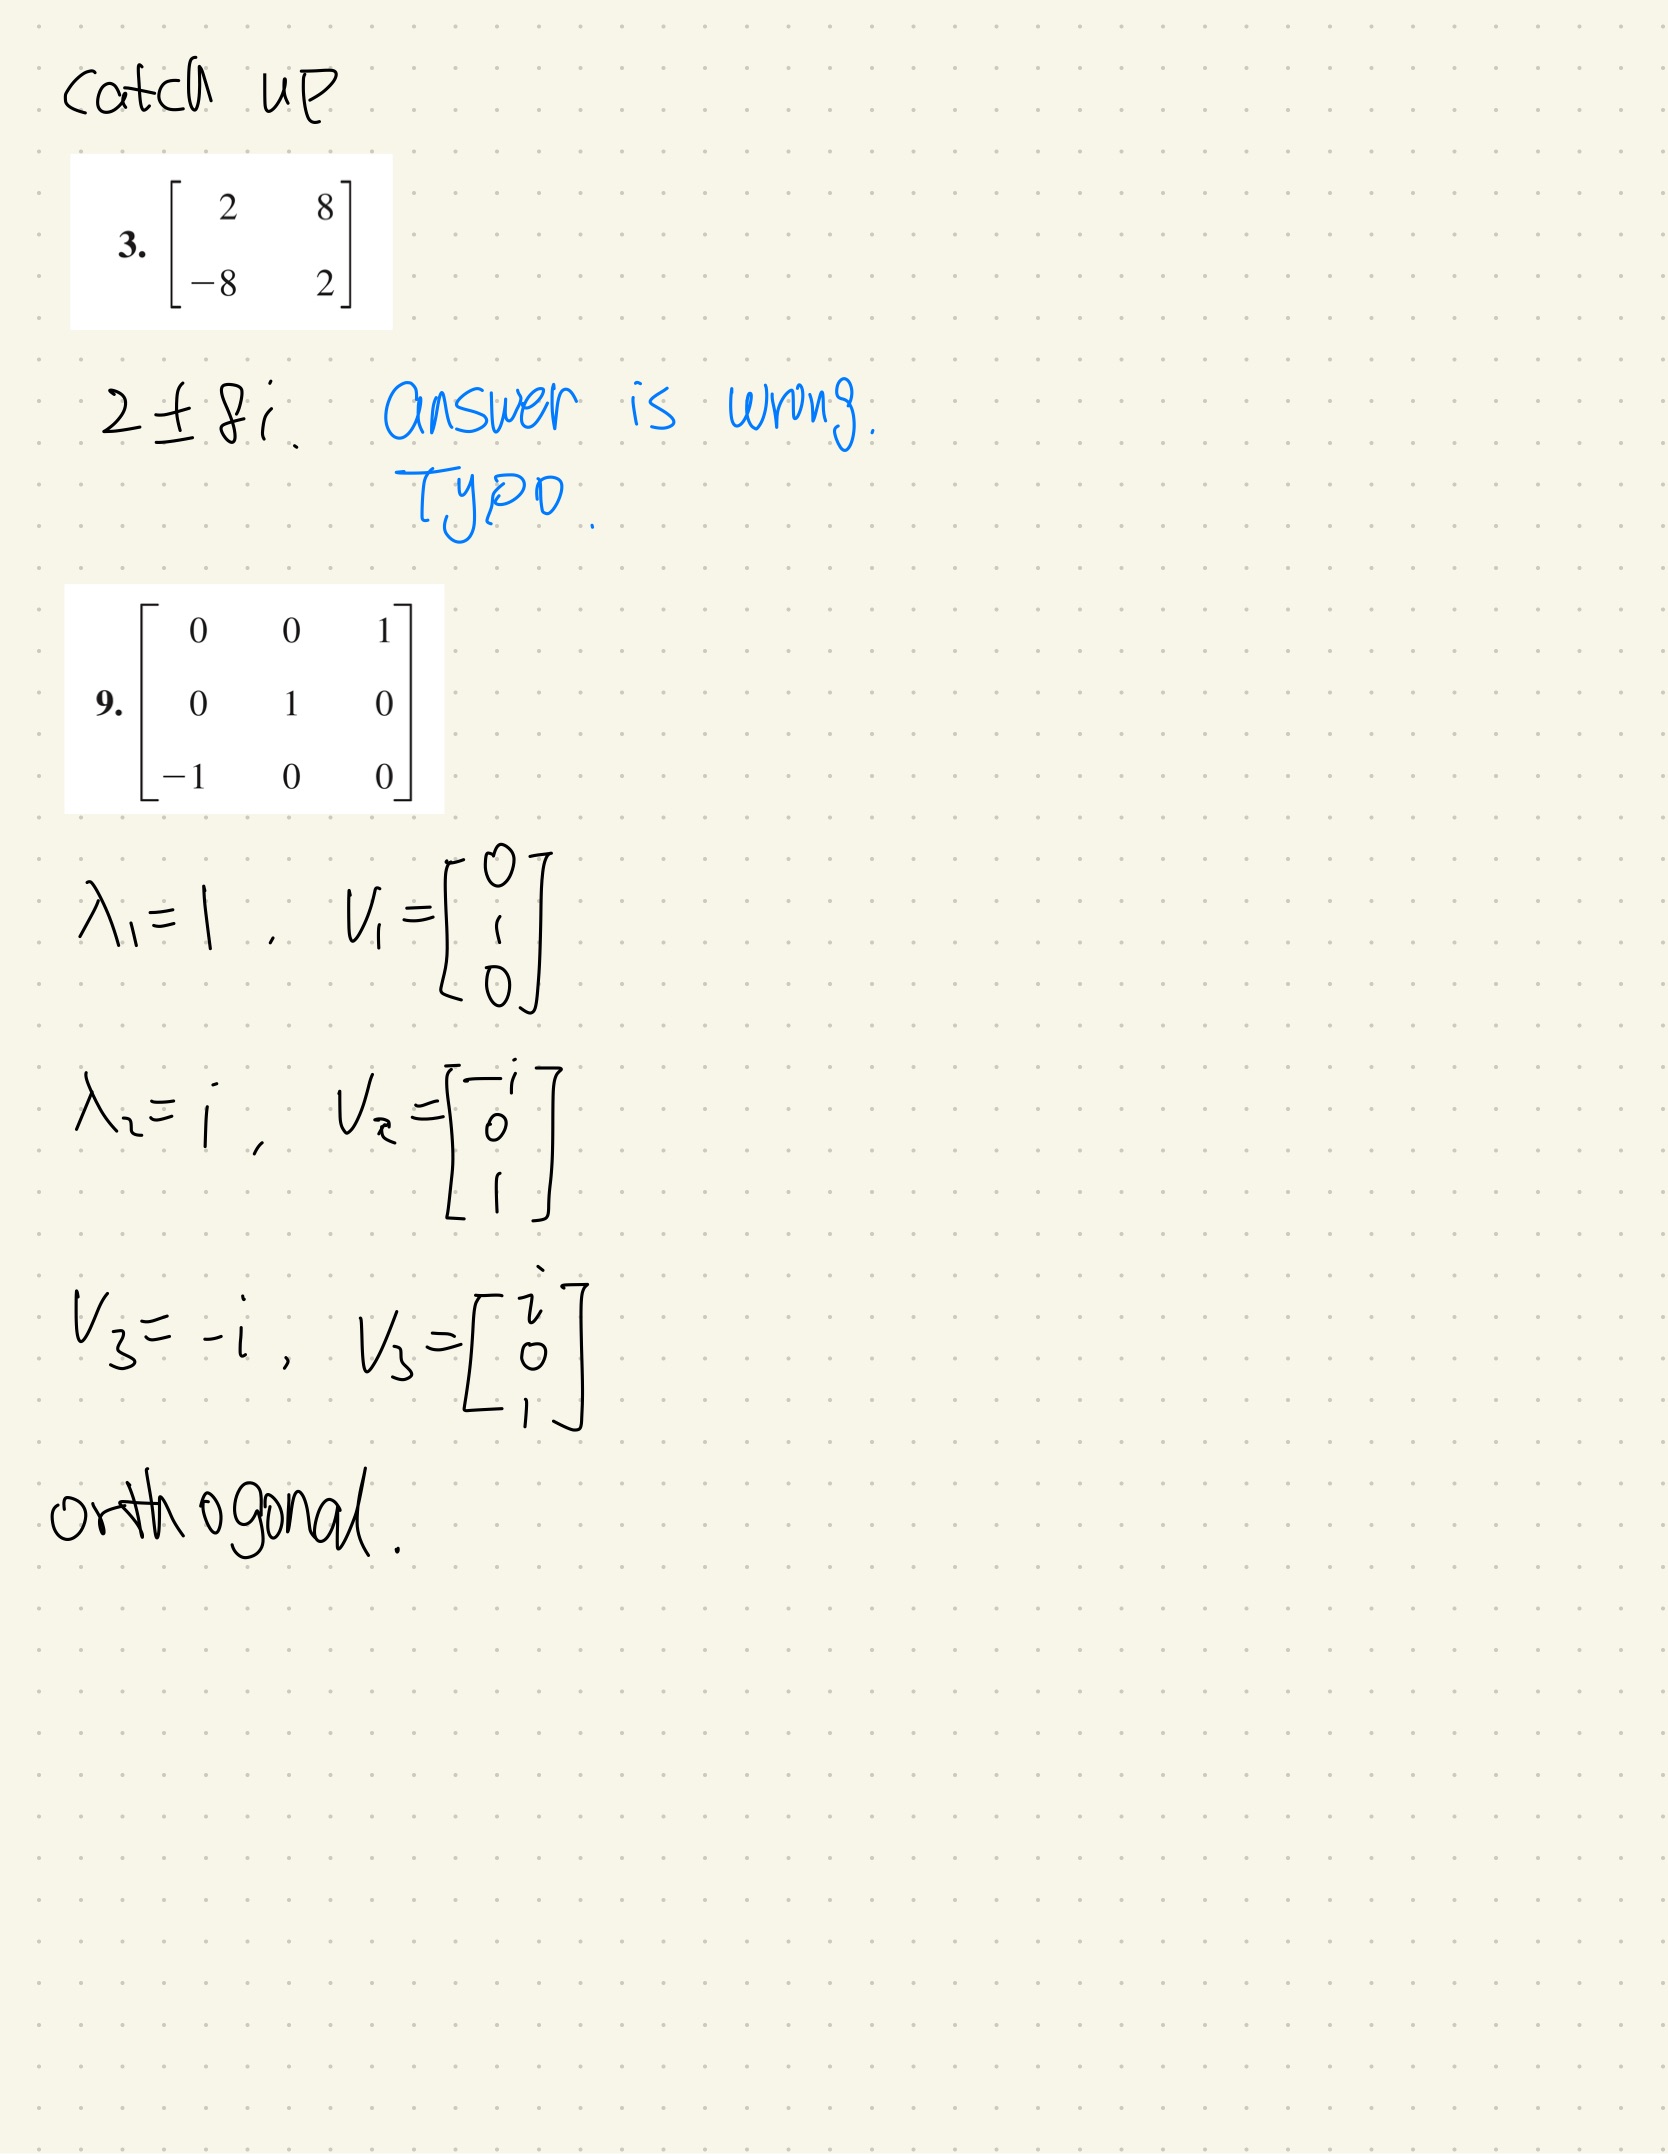 catch up
3. [ 2 8
-8 2 ]
2 ± 8i. answer is wrong.
Typo.
9. [ 0 0 1
0 1 0
-1 0 0 ]
λ₁ = 1 , V₁ = [ 0
1
0 ]
λ₂ = i , V₂ = [ -i
0
1 ]
V₃ = -i , V₃ = [ i
0
1 ]
orthogonal.